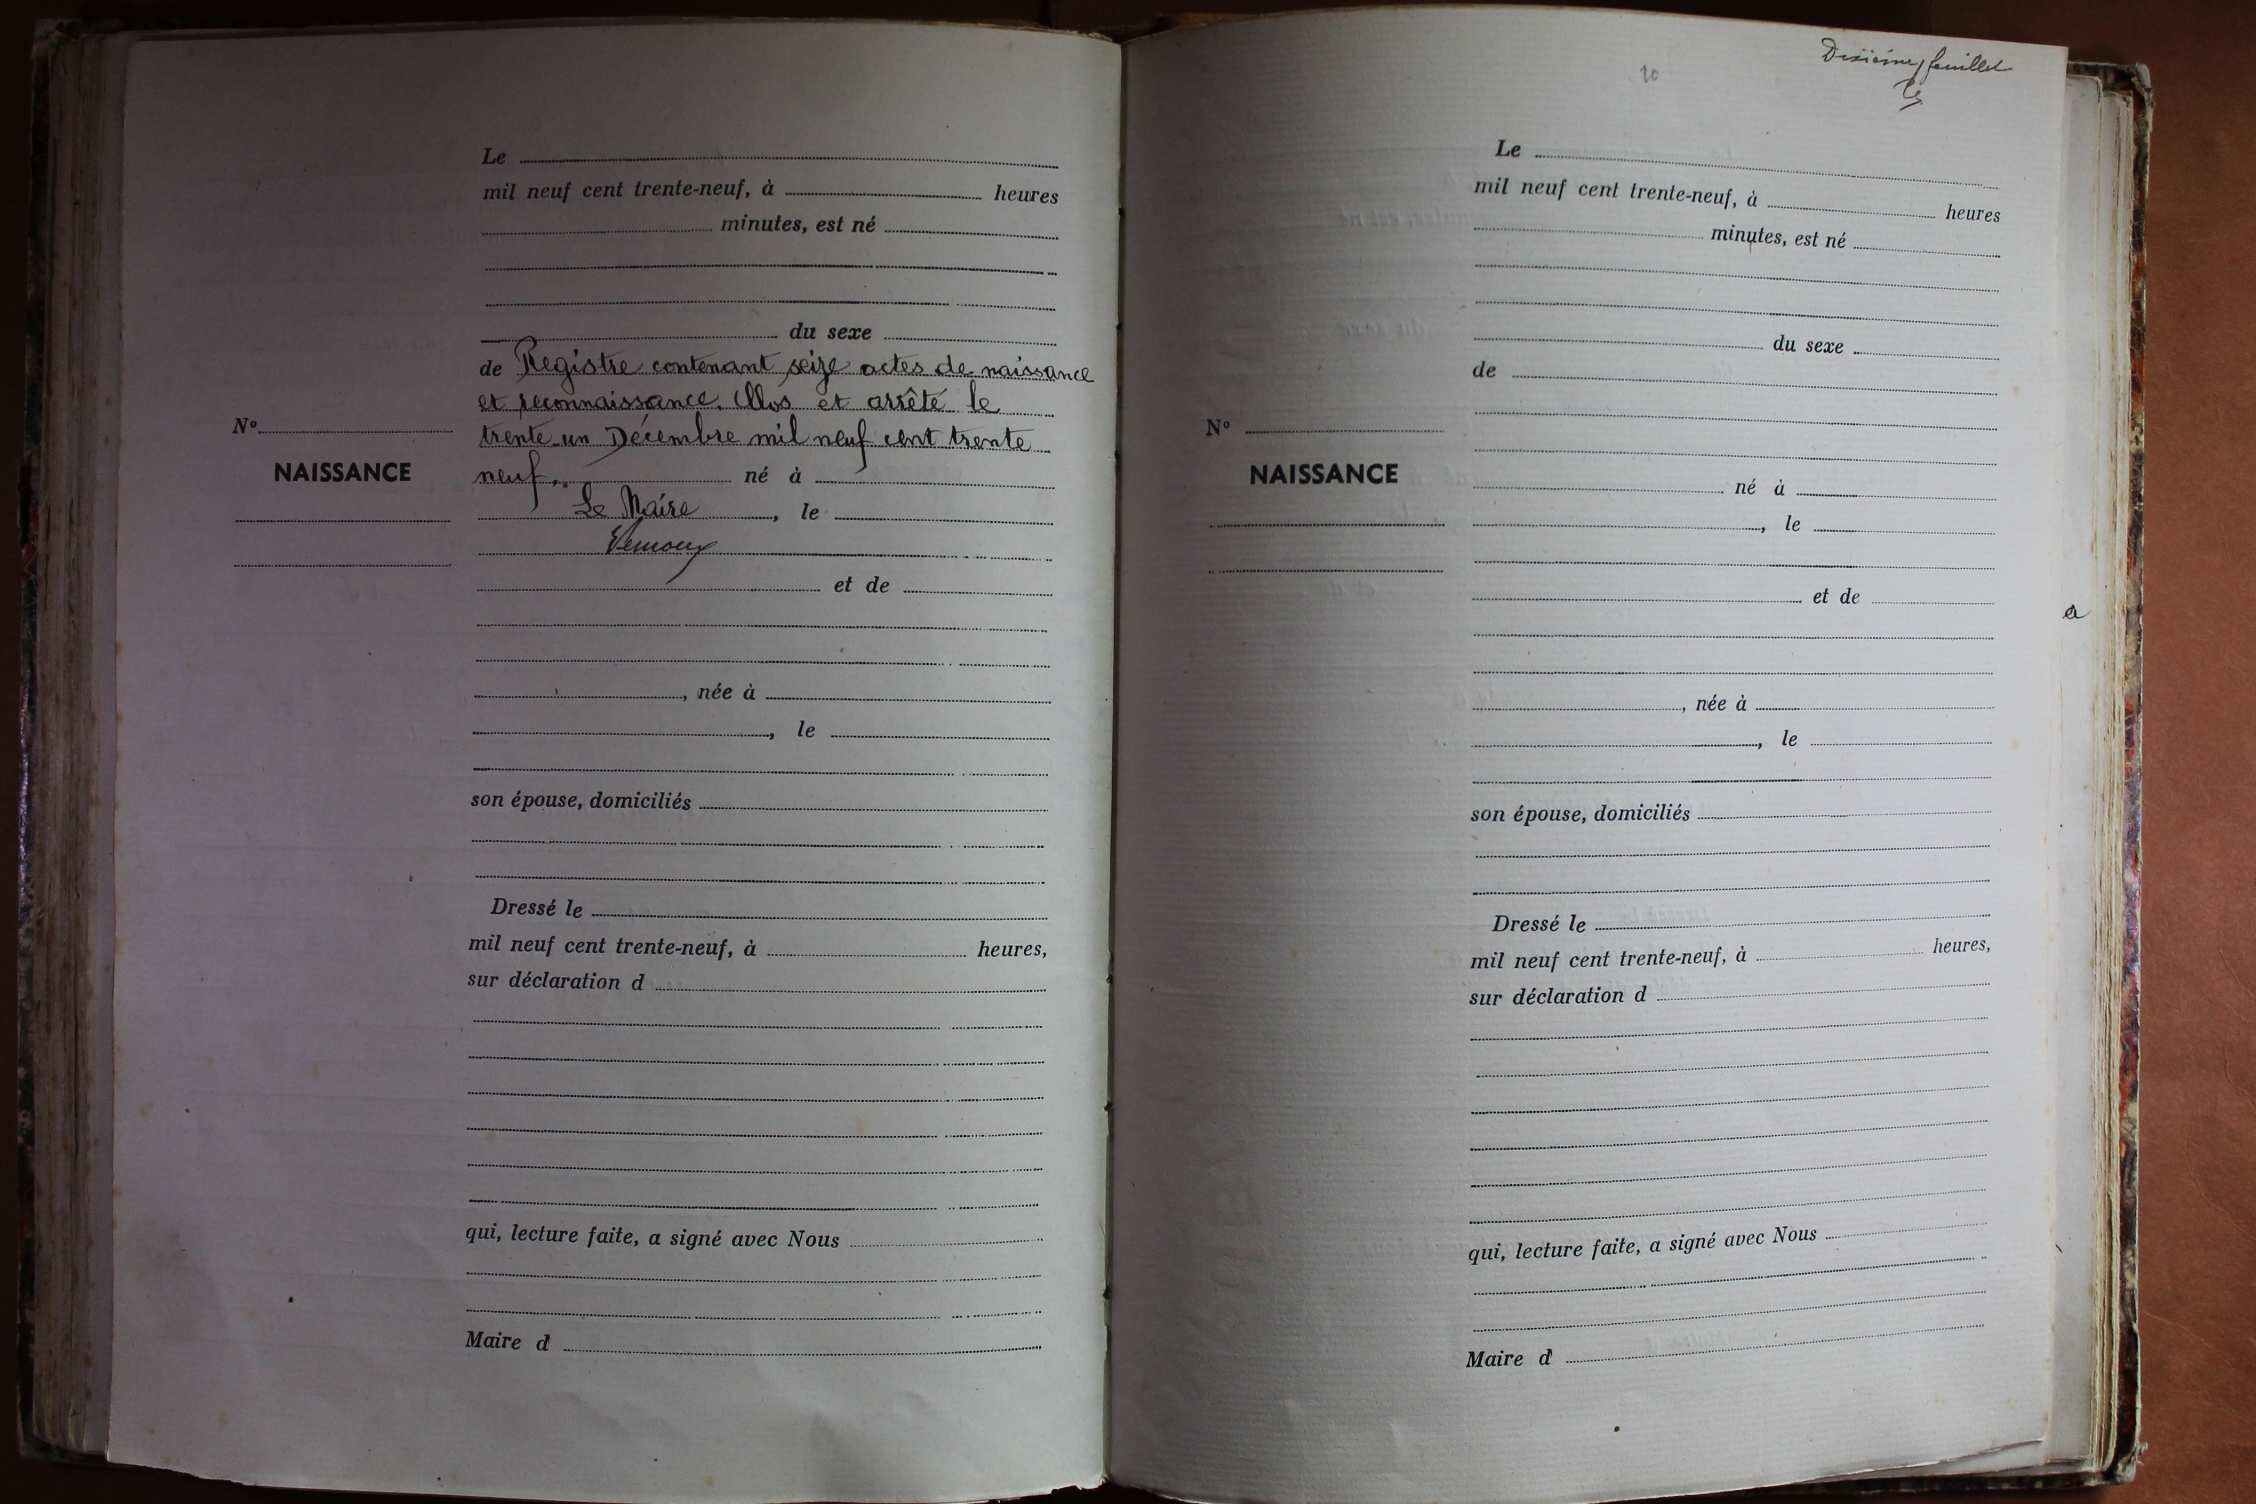 Le
mil neuf cent trente-neuf, à heures
minutes, est né
du sexe
de Registre contenant seize actes de naissance
et reconnaissance. Clos et arrêté le
N°
trente-un Décembre mil neuf cent trente
NAISSANCE
neuf. né à
Le Maire , le
et de
, née à
, le
son épouse, domiciliés
Dressé le
mil neuf cent trente-neuf, à heures,
sur déclaration d
qui, lecture faite, a signé avec Nous
Maire d
Dixième feuillet
10
Le
mil neuf cent trente-neuf, à heures
minutes, est né
du sexe
de
N°
NAISSANCE
né à
, le
et de
a
, née à
, le
son épouse, domiciliés
Dressé le
mil neuf cent trente-neuf, à heures,
sur déclaration d
qui, lecture faite, a signé avec Nous
Maire d